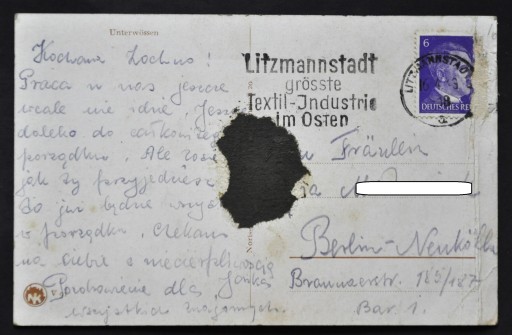 Unterwössen
Kochana Zochno!
Praca u nas jeszcze
wcale nie idzie. Jeszcze
daleko do całkowitego
porządku. Ale
jak ty przyjedziesz
to już będzie
w porządku. Czekam
na Ciebie z niecierpliwością
Janka
Pozdrowienie dla
wszystkich znajomych.
NK
Litzmannstadt
grösste
Textil-Industrie
im Osten
6
DEUTSCHES REICH
LITZMANNSTADT
a
Fräulein
Berlin-Neukölln
Braunauerstr. 185/187
Bar 1.